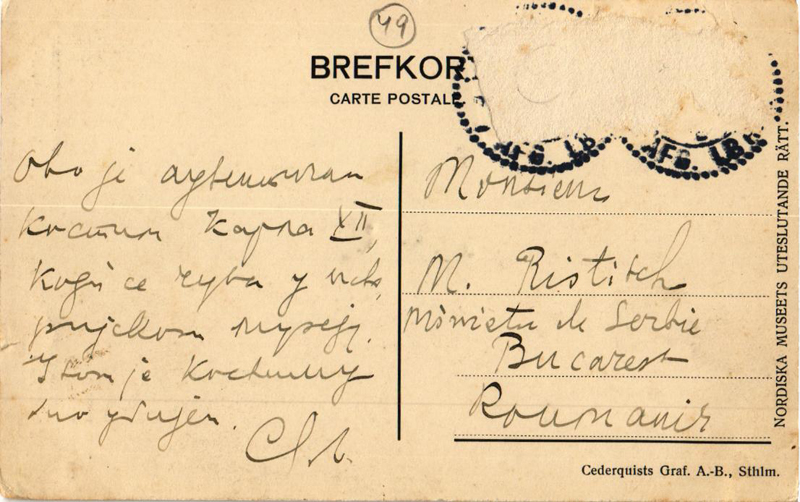 49
BREFKOR
CARTE POSTALE
AFG. LB
AFG. LBR
Ово је аутентичан
костим Карла XII,
који се чува у исто
ријском музеју.
У том је костиму
убијен.
Monsieur
M. Ristitch
Ministre de Serbie
Bucarest
Roumanie
NORDISKA MUSEETS UTESLUTANDE RÄTT.
Cederquists Graf. A.-B., Sthlm.